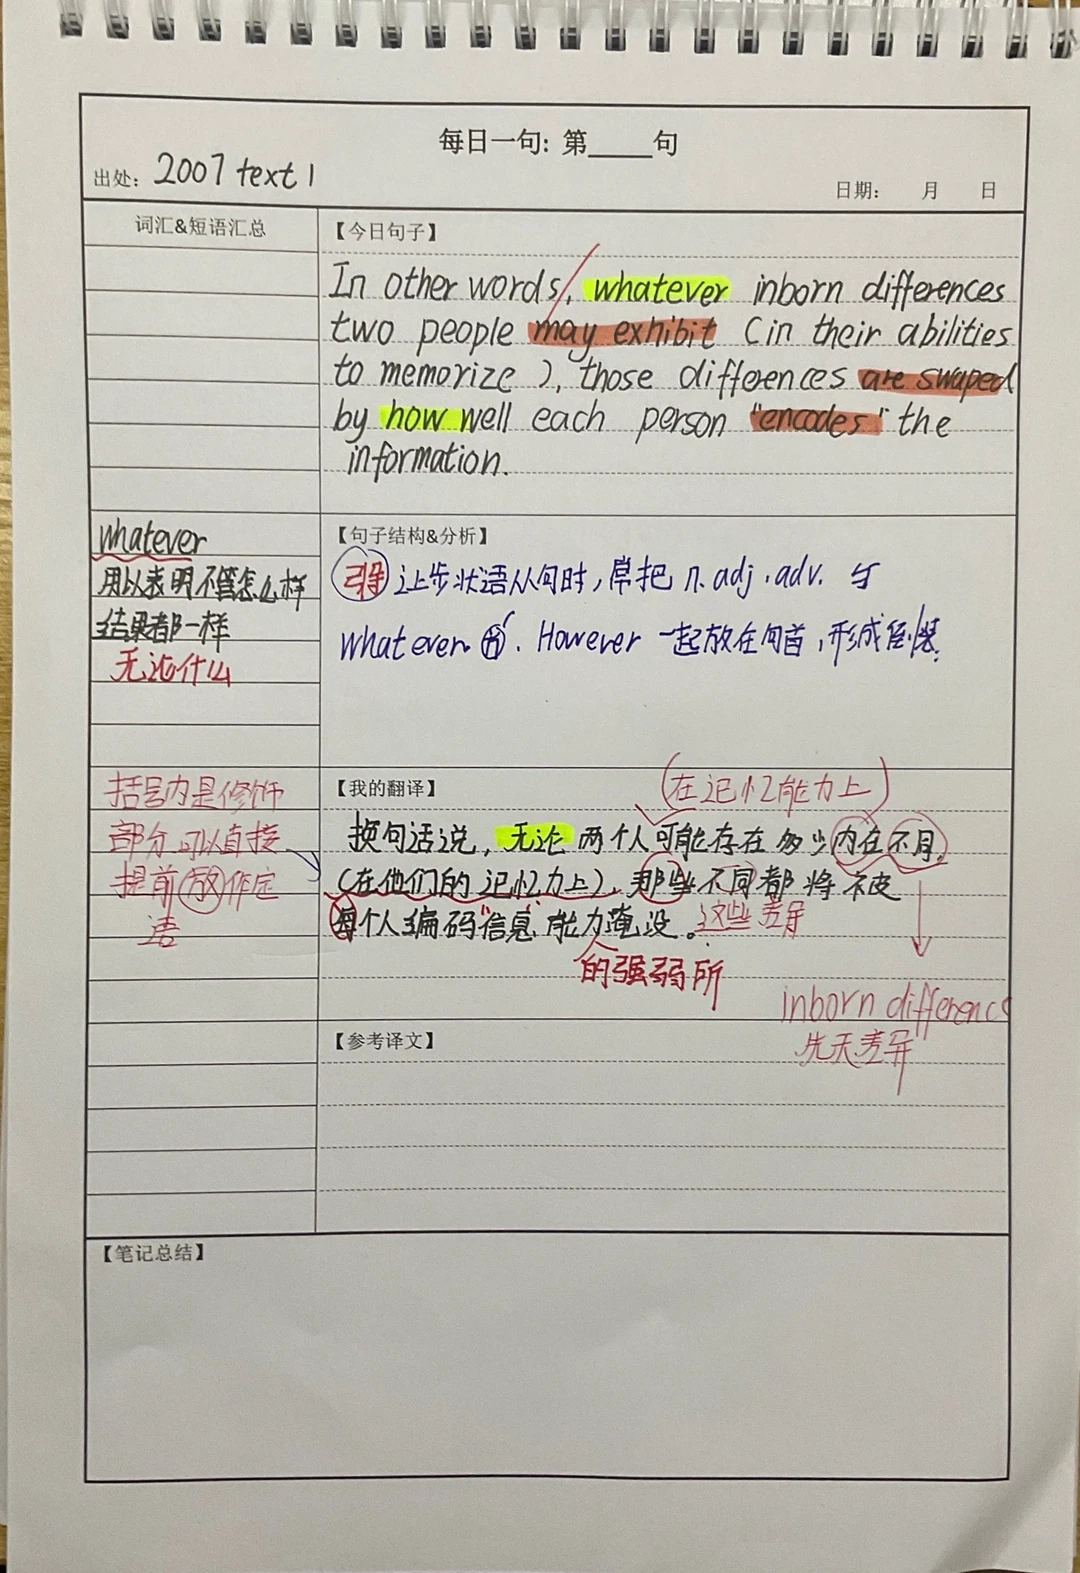 每日一句: 第____句
出处: 2007 text 1
日期: 月 日
词汇&短语汇总
【今日句子】
In other words, whatever inborn differences
two people may exhibit (in their abilities
to memorize), those differences are swaped
by how well each person "encodes" the
information.
whatever
用以表明不管怎么样
结果都一样
无论什么
【句子结构&分析】
引导 让步状语从句时,常把 n. adj. adv. 与
whatever. However 一起放在句首,形成倒装.
括号内是修饰
部分可以直接
提前放作定
语
【我的翻译】
(在记忆能力上)
换句话说,无论两个人可能存在多少内在不同,
(在他们的记忆力上),那些不同都将被
每个人编码"信息"能力淹没。这些差异
的强弱所
inborn difference
先天差异
【参考译文】
【笔记总结】